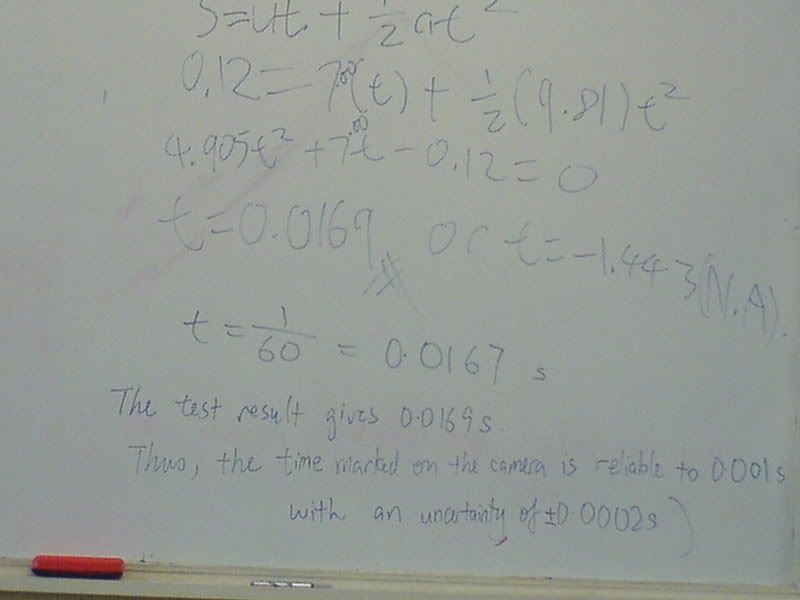 S=ut + 1/2 at²
0.12 = 7.00(t) + 1/2 (9.81)t²
4.905t² + 7.00t - 0.12 = 0
t=0.0169 or t=-1.443(N.A).
t = 1/60 = 0.0167 s
The test result gives 0.0169s.
Thus, the time marked on the camera is reliable to 0.001s
with an uncertainty of ±0.0002s)